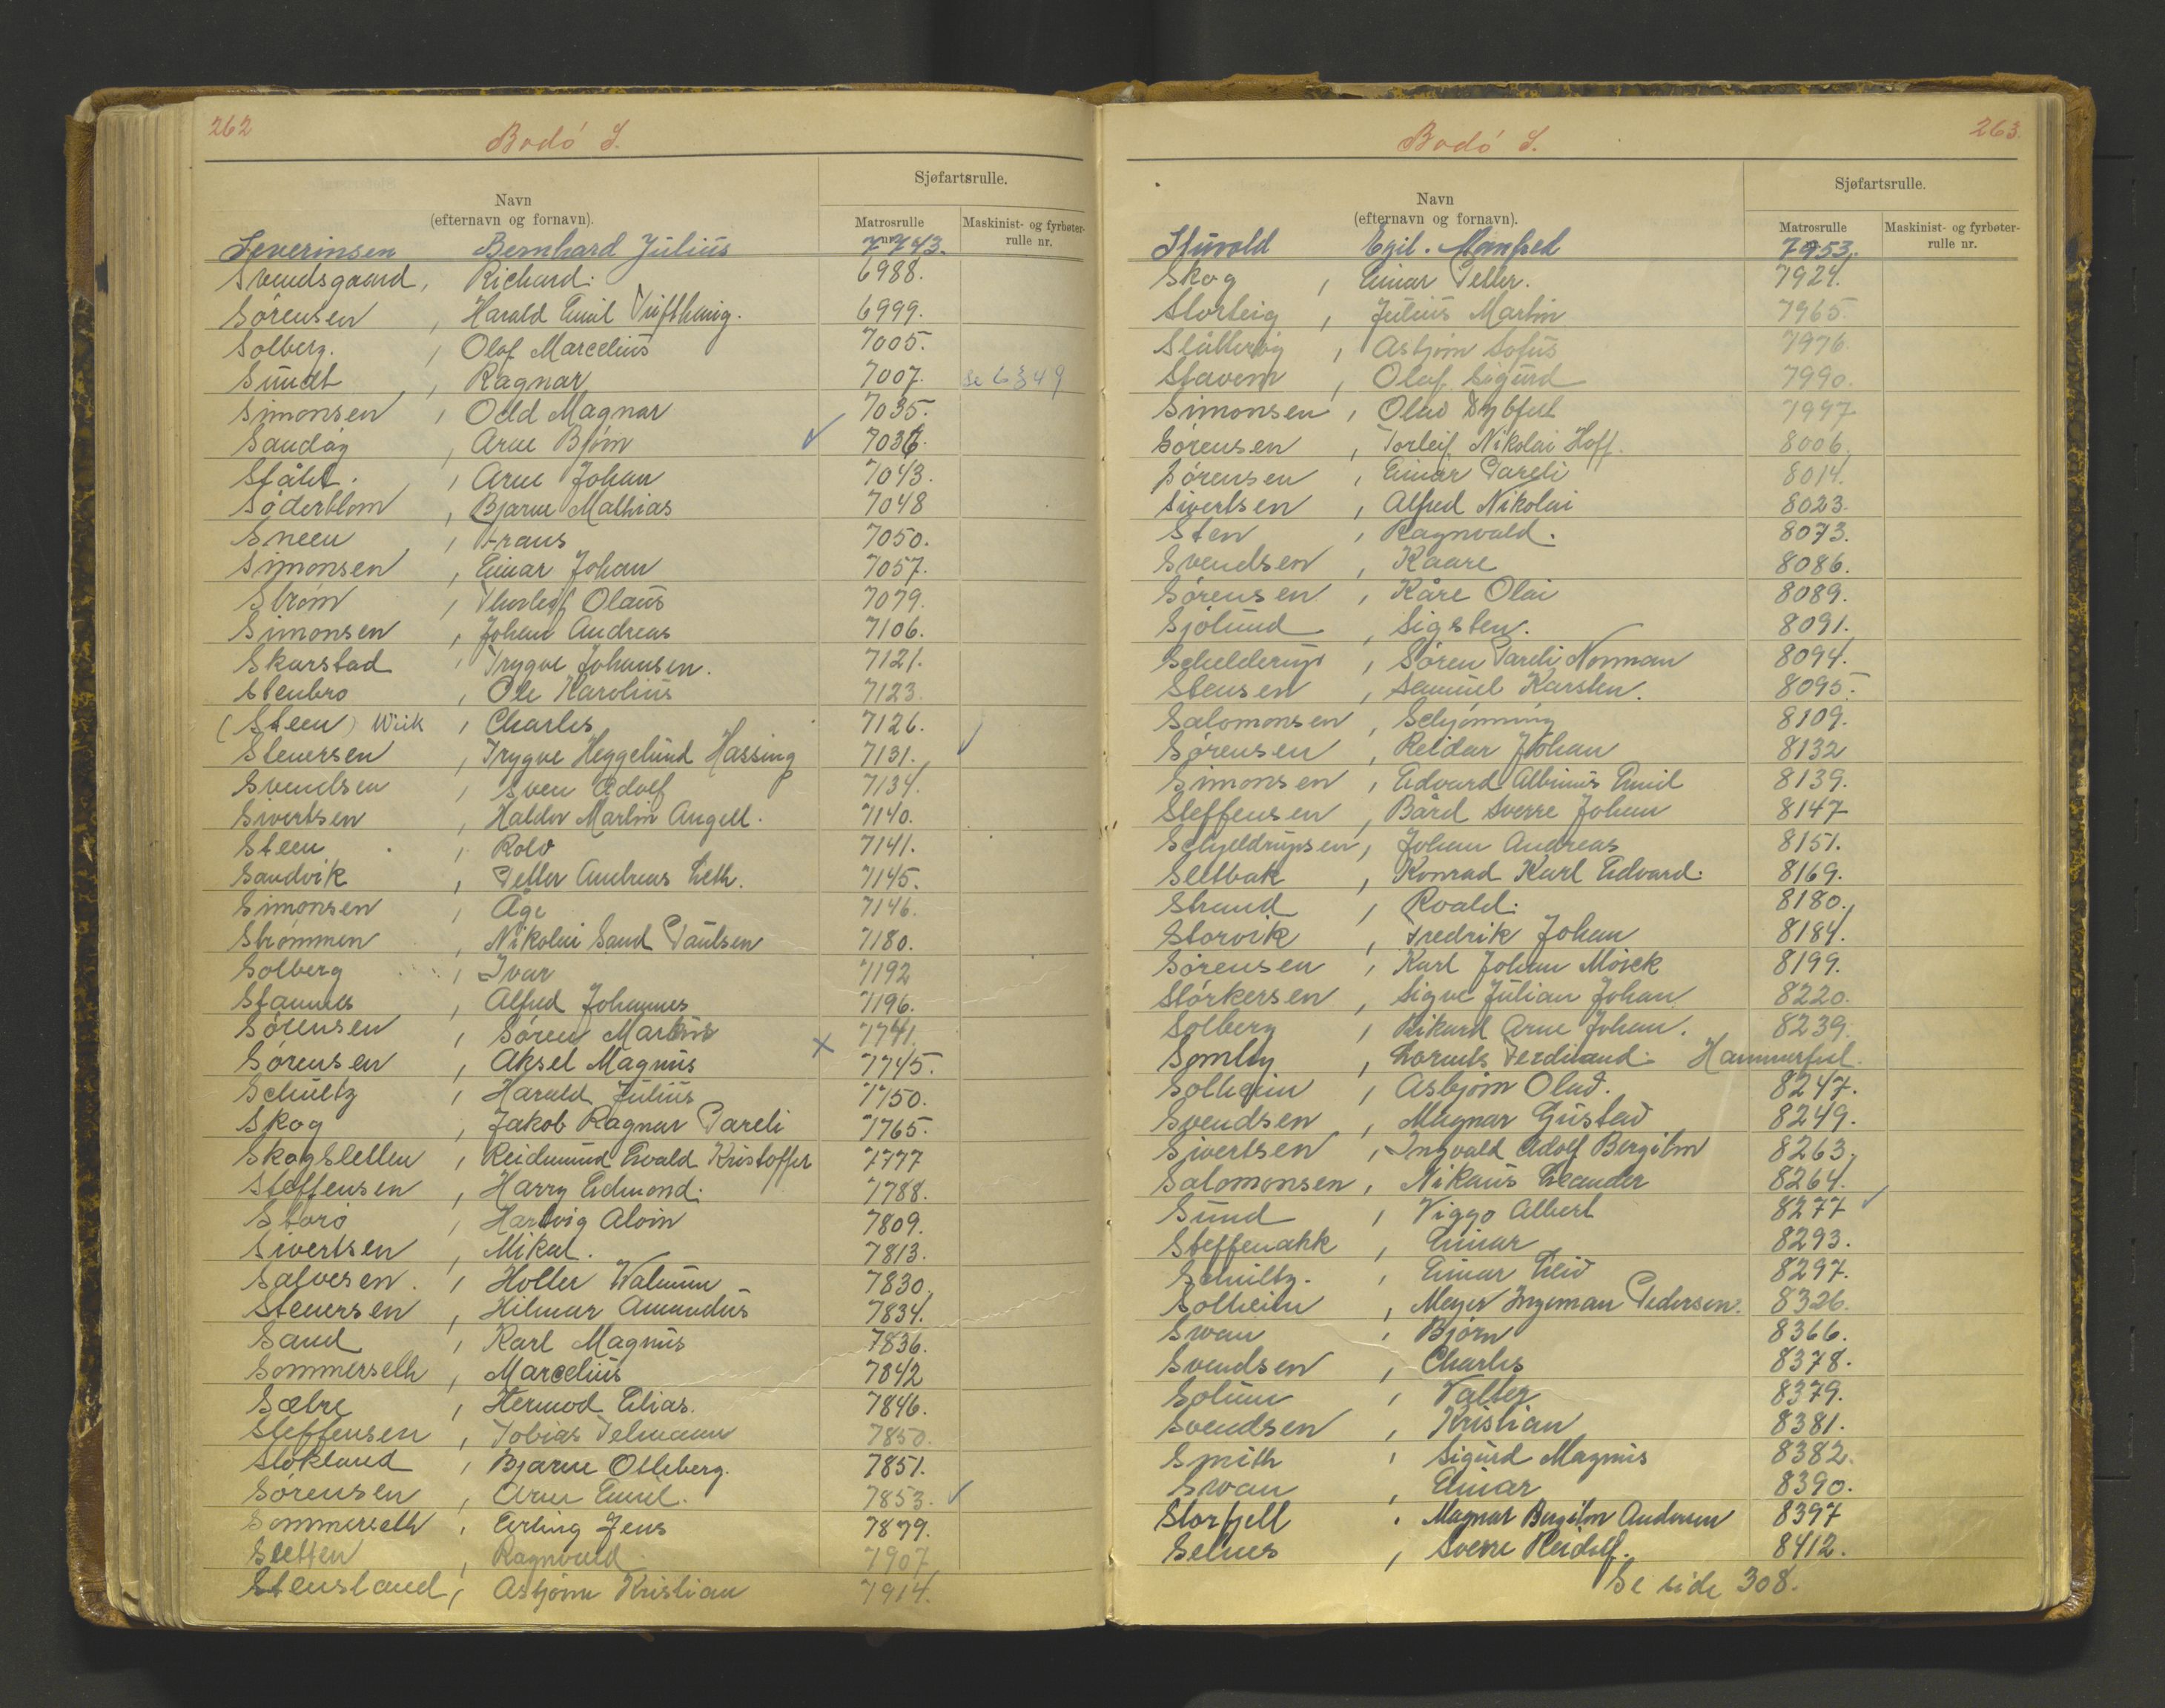 262
Bodó S.
Navn
(efternavn og fornavn).
Sjøfartsrulle.
Matrosrulle nr.
Maskinist- og fyrbøter-rulle nr.
Severinsen Bernhard Julius 7743.
Svendsgaard, Richard. 6988.
Sörensen, Harald Emil 6999.
Solberg, Olaf Marcelius 7005.
Sundt, Ragnar 7007. se 6349
Simonsen, Odd Magnar 7035.
Sandåg, Arne Bjórn 7036.
Ståhl, Arne Johan 7043.
Söderblom, Bjarne Mathias 7048
Sneen, Frans 7050.
Simonsen, Einar Johan 7057.
Ström, Thorleif Olaus 7079.
Simonsen, Johan Andreas 7106.
Skarstad, Trygve Johansen. 7121.
Stenbro, Ole Karolius 7123.
(Steen) Wiik, Charles 7126.
Stenersen, Trygve Heggelund Hassing 7131.
Svendsen, Sven Adolf 7134.
Sivertsen, Haldor Martin Angell. 7140.
Steen, Rolv 7141.
Sandvik, Petter Andreas Leth. 7145.
Simonsen, Åge 7146.
Strömmen, Nikolai Sand Paulsen 7180.
Solberg, Ivar 7192
Stamnes, Alfred Johannes 7196.
Sörensen, Sören Markus 7741.
Sörensen, Aksel Magnus 7745.
Schultz, Harald Julius 7750.
Skog, Jakob Ragnar Pareli 7765.
Skogsletten, Reidmund Evald Kristoffer 7777
Steffensen, Harry Edmond. 7788.
Storö, Hartvig Alvin 7809.
Sivertsen, Mikal. 7813.
Salvesen, Holter Walmun 7830.
Stenersen, Hilmar Amundus 7834.
Sand, Karl Magnus 7836.
Sommerseth, Marcelius 7842
Sæbre, Hermod Elias. 7846.
Steffensen, Tobias Telmann 7850.
Stokland, Bjarne Otleberg. 7851.
Sörensen, Arne Emil. 7853.
Sommerseth, Erling Jens 7879.
Sletten, Ragnvald 7907
Stensland, Asbjörn Kristian 7914.
263.
Bodó S.
Navn
(efternavn og fornavn).
Sjøfartsrulle.
Matrosrulle nr.
Maskinist- og fyrbøter-rulle nr.
Stuvold Egil. Manfred 7953.
Skog, Einar Petter. 7924.
Storteig, Julius Martin 7965.
Slåtteröy, Asbjörn Sofus 7976.
Stavem, Olaf Sigurd 7990.
Simonsen, Olav Dybfest 7997
Sörensen, Torleif Nikolai Hoff. 8006.
Sörensen, Einar Pareli 8014.
Sivertsen, Alfred Nikolai 8023.
Sten, Ragnvald. 8073.
Svendsen, Kaare 8086.
Sörensen, Kåre Olai 8089.
Sjölund, Sigsten. 8091.
Schelderup, Sören Pareli Norman 8094.
Stensen, Samuel Karsten. 8095.
Salomonsen, Schjönning 8109.
Sörensen, Reidar Johan 8132
Simonsen, Edvard Albinus Emil 8139.
Steffensen, Bård Sverre Johan 8147
Schjeldrupsen, Johan Andreas 8151.
Seltbak, Konrad Karl Edvard. 8169.
Strand, Roald. 8180.
Storvik, Fredrik Johan 8184.
Sörensen, Karl Johan Mörck 8199.
Störkersen, Signe Julian Johan 8220.
Solberg, Rikard Arne Johan. 8239.
Somby, Lorents Ferdinand. Hammerfest.
Solheim, Asbjörn Olav. 8247.
Svendsen, Magnar Gustav 8249.
Sivertsen, Ingvald Adolf Bergiton 8263.
Salomonsen, Nikaus Leander 8264.
Sund, Viggo Albert 8277
Steffenakk, Einar 8293.
Schultz, Einar Eliv 8297.
Solheim, Meyer Ingeman Pedersen. 8326.
Swan, Björn 8366.
Svendsen, Charles 8378.
Solum, Valter 8379.
Svendsen, Kristian 8381.
Smith, Sigurd Magnus 8382.
Swan, Einar 8390.
Storfjell, Magnar Bergiton Andersen 8397
Selnes, Sverre Reidolf. 8412.
Se side 308.